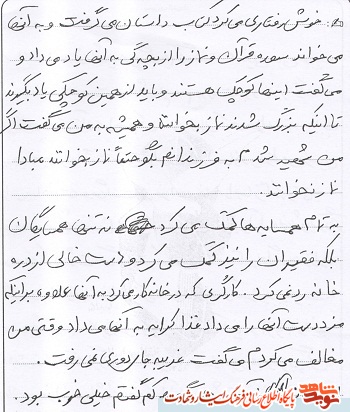 خوش رفتاری می کرد کتاب داستان می گرفت و به آنها
می خواند سوره قرآن و نماز را از بچه گی به آنها یاد می داد و
می گفت اینها کوچک هستند و باید از همین کوچکی یاد بگیرند
تا اینکه بزرگ شدند نماز بخوانند و همیشه به من می گفت اگر
من شهید شدم به فرزندانم بگو حتماً نماز بخوانند مبادا
نماز نخوانند.
به تمام همسایه ها کمک می کرد نه تنها همسایگان
بلکه فقیران را نیز کمک می کرد و دست خالی از در
خانه رد نمی کرد. کارگری که در خانه کار می کرد به آنها علاوه بر اینکه
مزد دست آنها را می داد غذا کرایه به آنها می داد وقتی من
مخالفت می کردم می گفت غریبه جای دوری نمی رفت.
گفتم خیلی خوب بود.
پایگاه اطلاع رسانی فرهنگ ایثار و شهادت
نوید شاهد